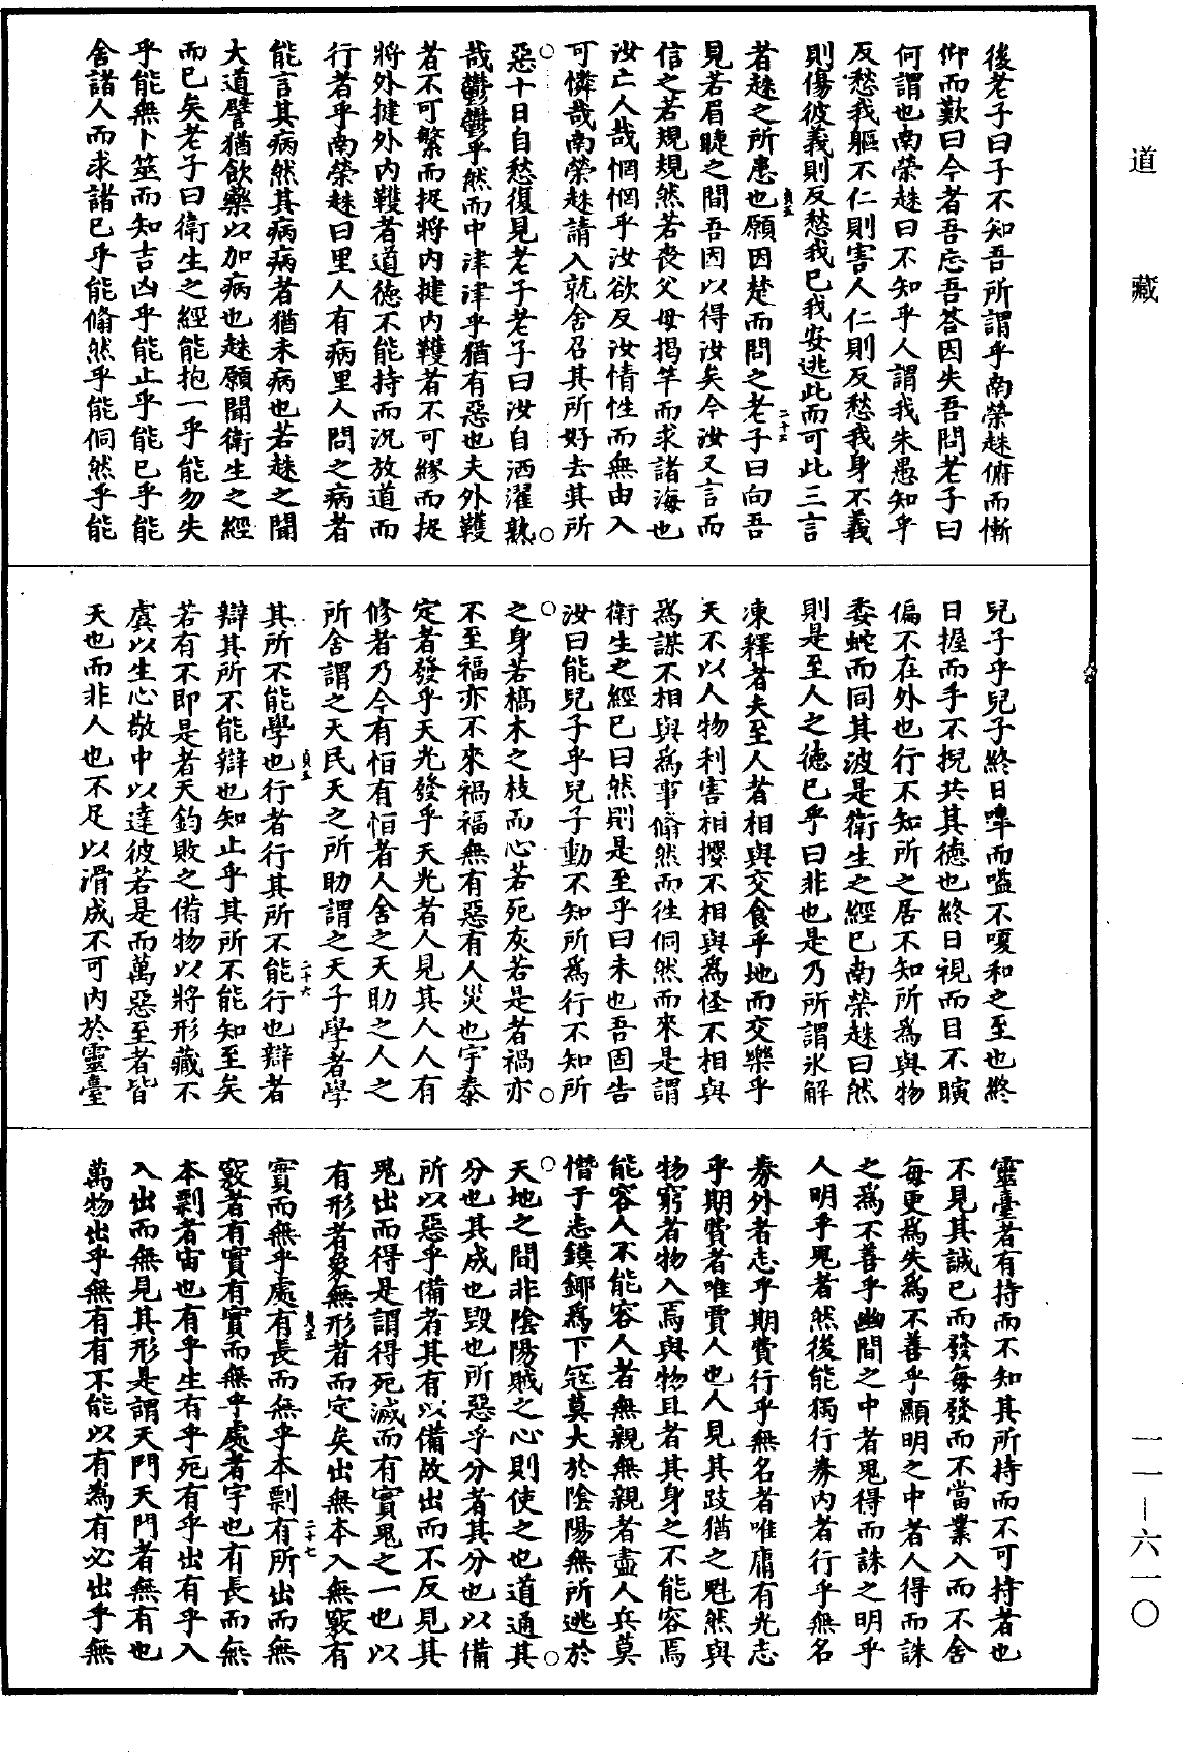 道藏
後老子曰子不知吾所謂乎南榮趎俯而慚
仰而歎曰今者吾忘吾答因失吾問老子曰
何謂也南榮趎曰不知乎人謂我朱愚知乎
反愁我軀不仁則害人仁則反愁我身不義
則傷彼義則反愁我已我安逃此而可此三言
者趎之所患也願因楚而問之老子曰向吾
見若眉睫之間吾因以得汝矣今汝又言而
信之若規規然若喪父母揭竿而求諸海也
汝亡人哉惘惘乎汝欲反汝情性而無由入
可憐哉南榮趎請入就舍召其所好去其所
惡十日自愁復見老子老子曰汝自洒濯熟
哉鬱鬱乎然而中津津乎猶有惡也夫外韄
者不可繁而捉將內揵內韄者不可繆而捉
將外揵外內韄者道德不能持而況放道而
行者乎南榮趎曰里人有病里人問之病者
能言其病然其病病者猶未病也若趎之聞
大道譬猶飲藥以加病也趎願聞衛生之經
而已矣老子曰衛生之經能抱一乎能勿失
乎能無卜筮而知吉凶乎能止乎能已乎能
舍諸人而求諸己乎能翛然乎能侗然乎能
兒子乎兒子終日嘷而嗌不嗄和之至也終
日握而手不掜共其德也終日視而目不瞚
偏不在外也行不知所之居不知所為與物
委蛇而同其波是衛生之經已南榮趎曰然
則是至人之德已乎曰非也是乃所謂氷解
凍釋者夫至人者相與交食乎地而交樂乎
天不以人物利害相攖不相與為怪不相與
為謀不相與為事翛然而往侗然而來是謂
衛生之經已曰然則是至乎曰未也吾固告
汝曰能兒子乎兒子動不知所為行不知所
之身若槁木之枝而心若死灰若是者禍亦
不至福亦不來禍福無有惡有人災也宇泰
定者發乎天光發乎天光者人見其人人有
修者乃今有恒有恒者人舍之天助之人之
所舍謂之天民天之所助謂之天子學者學
其所不能學也行者行其所不能行也辯者
辯其所不能辯也知止乎其所不能知至矣
若有不即是者天鈞敗之備物以將形藏不
虞以生心敬中以達彼若是而萬惡至者皆
天也而非人也不足以滑成不可內於靈臺
靈臺者有持而不知其所持而不可持者也
不見其誠已而發每發而不當業入而不舍
每更為失為不善乎顯明之中者人得而誅
之為不善乎幽間之中者鬼得而誅之明乎
人明乎鬼者然後能獨行券內者行乎無名
券外者志乎期費行乎無名者唯庸有光志
乎期費者唯賈人也人見其跂猶之魁然與
物窮者物入焉與物且者其身之不能容焉
能容人不能容人者無親無親者盡人兵莫
憯于志鏌鋣為下寇莫大於陰陽無所逃於
天地之間非陰陽賊之心則使之也道通其
分也其成也毀也所惡乎分者其分也以備
所以惡乎備者其有以備故出而不反見其
鬼出而得是謂得死滅而有實鬼之一也以
有形者象無形者而定矣出無本入無竅有
實而無乎處有長而無乎本剽有所出而無
竅者有實有實而無乎處者宇也有長而無
本剽者宙也有乎生有乎死有乎出有乎入
入出而無見其形是謂天門天門者無有也
萬物出乎無有有不能以有為有必出乎無
貞五
二十五
貞五
二十六
貞五
二十七
一一—六一〇